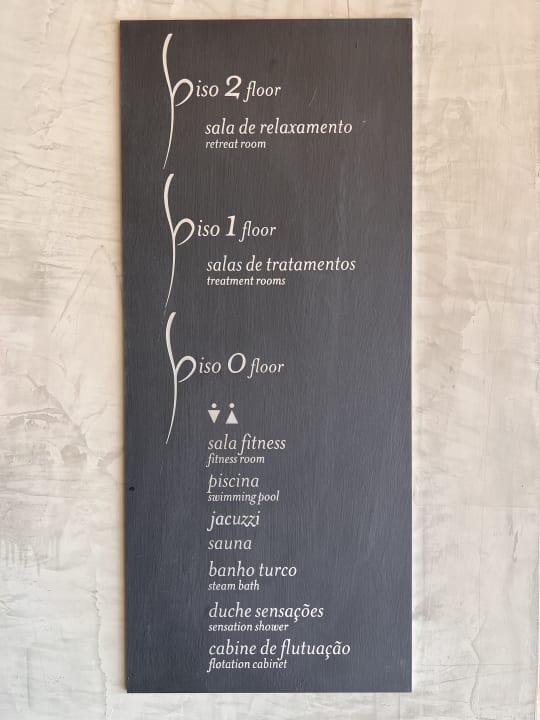 piso 2 floor
sala de relaxamento
retreat room
piso 1 floor
salas de tratamentos
treatment rooms
piso 0 floor
sala fitness
fitness room
piscina
swimming pool
jacuzzi
sauna
banho turco
steam bath
duche sensações
sensation shower
cabine de flutuação
flotation cabinet